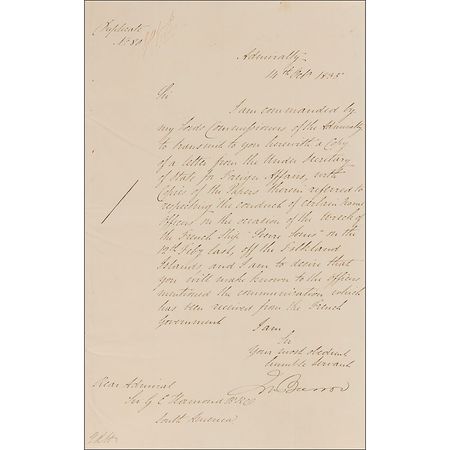 Duplicate
No. 80
Admiralty
14th Octr. 1835
Sir
I am commanded by
my Lords Commissioners of the Admiralty
to transmit to you herewith a Copy
of a letter from the Under Secretary
of State for Foreign Affairs, with
Copies of the Papers therein referred to
respecting the conduct of certain
Officers on the occasion of the Wreck of
the French Ship "Jeune" on the
Feby last, off the Falkland
Islands, and I am to desire that
you will make known to the officers
mentioned the communication which
has been received from the French
Government
I am
Sir
Your most obedient
humble Servant
Jn Barrow
Rear Admiral
Sir G E Hamond Bt KCB
South America